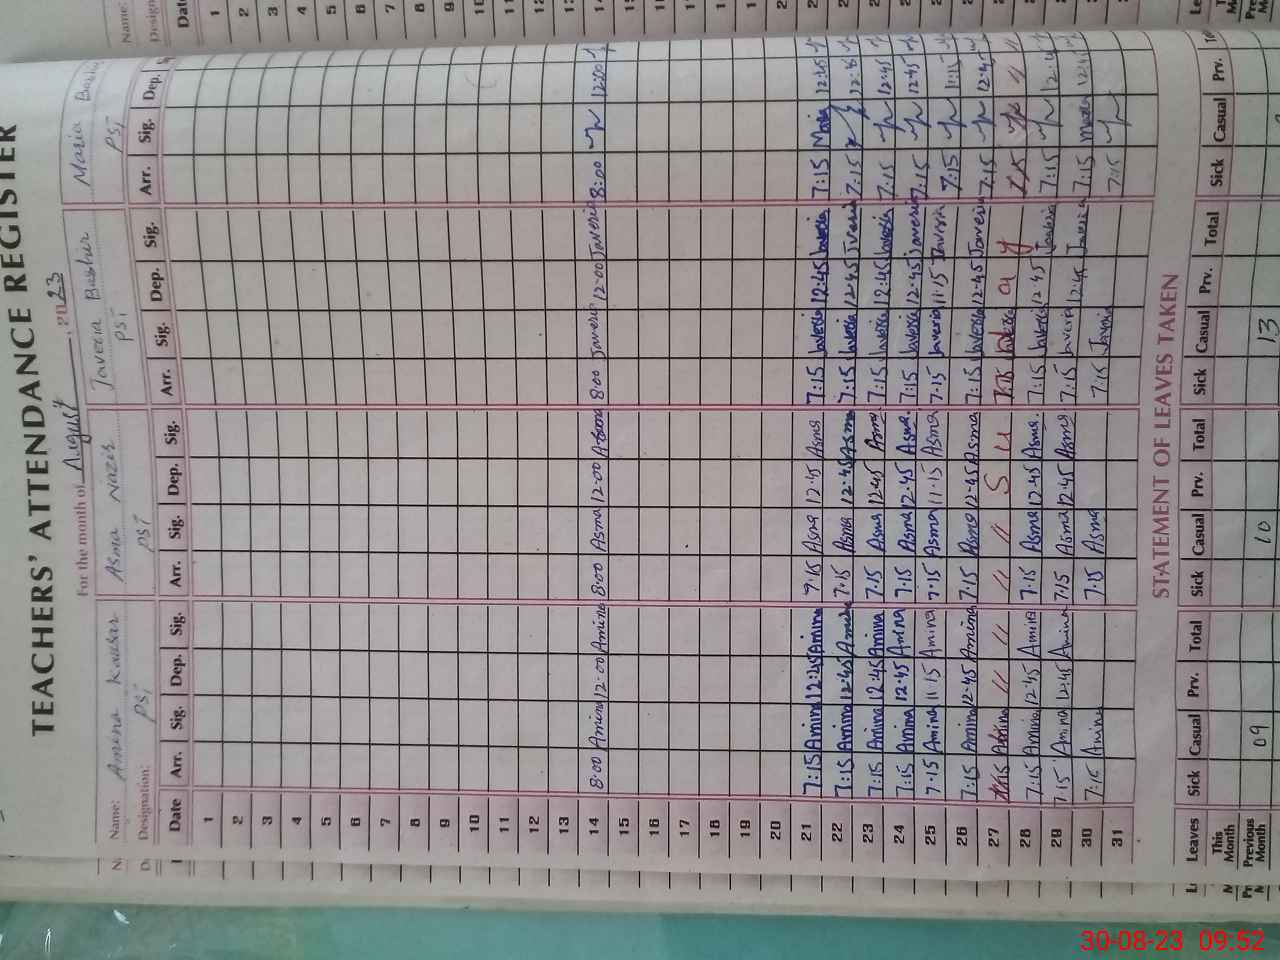 TEACHERS' ATTENDANCE REGISTER
For the month of August, 2023
Name: Amena Kausar Asma Nazir Javeria Bashir Maria Bashir
Designation: PST PST PST PST
Date Arr. Sig. Dep. Sig. Arr. Sig. Dep. Sig. Arr. Sig. Dep. Sig. Arr. Sig. Dep.
1
2
3
4
5
6
7
8
9
10
11
12
13
14 8:00 Amina 12:00 Amina 8:00 Asma 12:00 Asma 8:00 Javeria 12:00 Javeria 8:00 12:00
15
16
17
18
19
20
21 7:15 Amina 12:45 Amina 7:15 Asma 12:45 Asma 7:15 Javeria 12:45 Javeria 7:15 Maria 12:45
22 7:15 Amina 12:45 Amina 7:15 Asma 12:45 Asma 7:15 Javeria 12:45 Javeria 7:15 12:45
23 7:15 Amina 12:45 Amina 7:15 Asma 12:45 Asma 7:15 Javeria 12:45 Javeria 7:15 12:45
24 7:15 Amina 12:45 Amina 7:15 Asma 12:45 Asma. 7:15 Javeria 12:45 Javeria 7:15 12:45
25 7:15 Amina 11:15 Amina 7:15 Asma 11:15 Asma 7:15 Javeria 11:15 Javeria 7:15 11:15
26 7:15 Amina 12:45 Amina 7:15 Asma 12:45 Asma 7:15 Javeria 12:45 Javeria 7:15 12:45
27 7:15 Amina // // // // S u 7:15 Javeria a y 7:15 // //
28 7:15 Amina 12:45 Amina 7:15 Asma 12:45 Asma. 7:15 Javeria 12:45 Javeria 7:15 12:45
29 7:15 Amina 12:45 Amina 7:15 Asma 12:45 Asma 7:15 Javeria 12:45 Javeria 7:15 Maria 12:45
30 7:15 Amina 7:15 Asma 7:15 Javeria 7:15
31
STATEMENT OF LEAVES TAKEN
Leaves Sick Casual Prv. Total Sick Casual Prv. Total Sick Casual Prv. Total Sick Casual Prv.
This Month
Previous Month 09 10 13
30-08-23 09:52